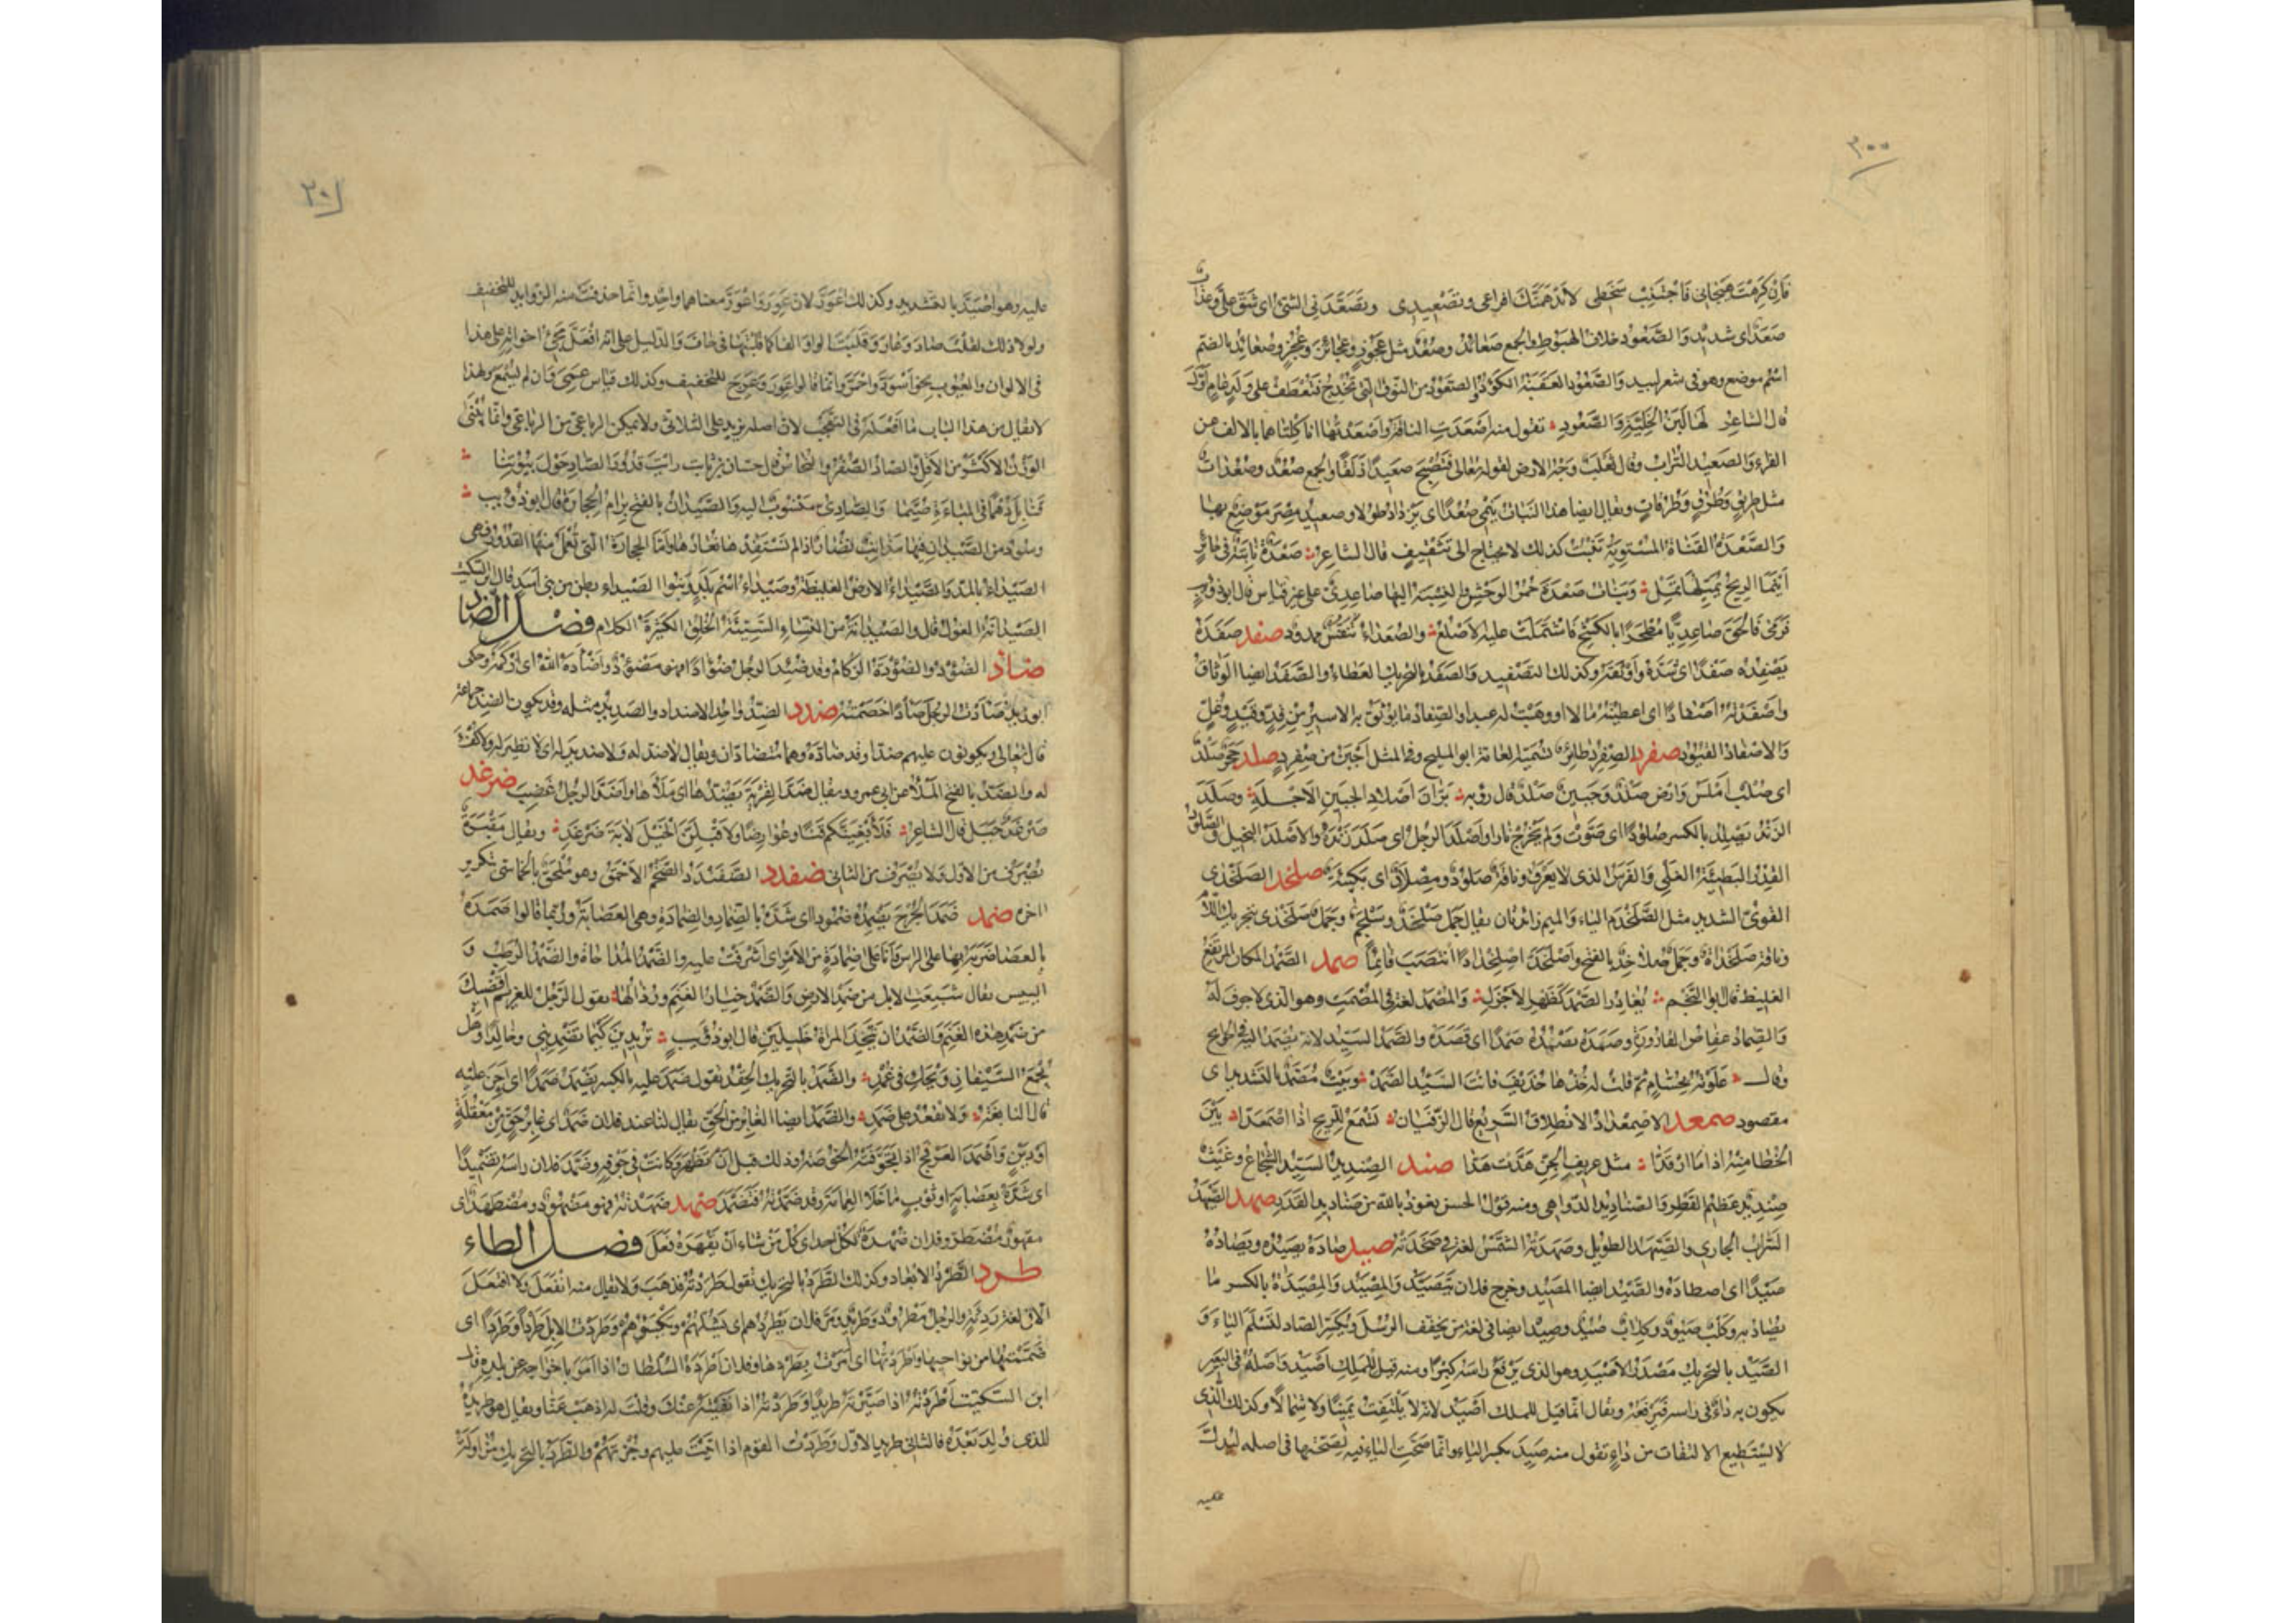 ٣٠٠
فان كرهت هجائى فاجتنب سخطى لا يدهمنك افراعى وتصعيدى وتصعدنى الشئ اى شق على وعذاب
صعد اى شديد والصعود خلاف الهبوط والجمع صعائد وصعد مثل عجوز وعجائز وعجز وصعائد بالضم
اسم موضع وهو فى شعر لبيد والصعود العقبة الكؤد والصعود من النوق التى تخدج فتعطف على ولد عام اول
قال الشاعر لها لبن الخلية والصعود تقول منه اصعدت الناقة واصعدتها انا كلتاهما بالالف عن
الفراء والصعيد التراب وقال ثعلب وجه الارض لقوله تعالى فتصبح صعيدا زلقا والجمع صعد وصعدات
مثل طريق وطرق وطرقات ويقال ايضا هذا النبات ينمى صعدا اى يزداد طولا وصعيد مصر موضع بها
والصعدة القناة المستوية تنبت كذلك لا يحتاج الى تثقيف قال الشاعر صعدة نابتة فى حائر
اينما الريح تميلها تمل وبنات صعدة حمر الوحش والنسبة اليها صاعدى على غير قياس قال ابو ذويب
فرمى فالحق صاعديا مطحرا بالكشح فاشتملت عليه الاضلع والصعداء تنفس ممدود صفد صفده
يصفده صفدا اى شده واوثقه وكذلك التصفيد والصفد بالتحريك العطاء والصفد ايضا الوثاق
واصفدته اصفادا اى اعطيته مالا او وهبت له عبدا والصفاد ما يوثق به الاسير من قد وقيد وغل
والاصفاد القيود صفرد الصفرد طائر تسميه العامة ابو المليح وفى المثل اجبن من صفرد صلد حجر صلد
اى صلب املس وارض صلد وجبين صلد قال رؤبه براق اصلاد الجبين الاجله وصلد
الزند يصلد بالكسر صلودا اى صوت ولم يخرج نارا واصلد الرجل اى صلد زنده والاصلد البخيل والصلود
القدر البطيئة الغلى والفرس الذى لا يعرق وناقة صلود ومصلاد اى بكيئة صلخد الصلخدى
القوى الشديد مثل الصلخدم الياء والميم زائدتان يقال جمل صلخد وسلجم وجمل صلخدى بتحريك اللام
وناقة صلخداة وجمل صلاخد بالفتح واصلخد اصلخدادا انتصب قائما صمد الصمد المكان المرتفع
الغليظ قال ابو النجم يغادر الصمد كظهر الاجزل والمصمد لغة فى المصمت وهو الذى لا جوف له
والصماد عفاص القارورة وصمده يصمده صمدا اى قصده والصمد السيد لانه يصمد اليه فى الحوائج
وقال علوته بحسام ثم قلت له خذها حذيف فانت السيد الصمد وبيت مصمد بالتشديد اى
مقصود صمعد الاصمعداد الانطلاق السريع قال الزفيان تسمع للريح اذا اصمعدا بين
الخطا منه اذا ما ارقدا مثل عزيف الجن هدت هدا صند الصنديد السيد الشجاع وغيث
صنديد عظيم القطر والصناديد الدواهى ومنه قول الحسن نعوذ بالله من صناديد القدر صهد الصيهد
السراب الجارى والصيهد الطويل وصهدته الشمس لغة فى صخدته صيد صاده يصيده ويصاده
صيدا اى اصطاده والصيد ايضا المصيد وخرج فلان يتصيد والمصيد والمصيدة بالكسر ما
يصاد به وكلب صيود وكلاب صيد وصيد ايضا فى لغة من يخفف الرسل ويكسر الصاد لتسلم الياء و
الصيد بالتحريك مصدر الاصيد وهو الذى يرفع راسه كبرا ومنه قيل للملك اصيد واصله فى البعير
يكون به داء فى راسه فيرفعه ويقال انما قيل للملك اصيد لانه لا يلتفت يمينا ولا شمالا وكذلك الذى
لا يستطيع الالتفات من داء تقول منه صيد بكسر الياء وانما صحت الياء فيه لصحتها فى اصله ليدل
عليه
٣٠١
عليه وهو اصيد بالتشديد وكذلك اعور لان عور واعور معناهما واحد وانما حذفت منه الزوايد للتخفيف
ولولا ذلك لقلت صاد وعار وقلبت الواو الفا كما قلبتها فى خاف والدليل على انه افعل مجئ اخواته على هذا
فى الالوان والعيوب نحو اسود واحمر وانما قالوا عور وعرج للتخفيف وكذلك قياس عمى وان لم يسمع ولهذا
لا يقال من هذا الباب ما افعله فى التعجب لان اصله يزيد على الثلاثى ولا يمكن الرباعى من الرباعى وانما يبنى
الوزن الاكثر من الاقل والصاد الصفر والنحاس قال حسان بن ثابت رايت قدور الصاد حول بيوتنا
قنابل دهما فى المباءة صيما والصادى منسوب اليه والصيدان بالفتح برام الحجارة قال ابو ذويب
وسود من الصيدان فيها مذانب نضار اذا لم نستفدها نعارها واما الحجارة التى تعمل منها القدور فهى
الصيداء بالمد والصيداء الارض الغليظة وصيداء اسم بلد وبنوا الصيداء بطن من بنى اسد قال ابن السكيت
الصيدانة الغول قال والصيدانة من النساء السيئة الخلق الكثيرة الكلام فصل الضاد
ضاد الضؤد والضؤدة الزكام وقد ضئد الرجل ضؤادا فهو مضؤد واضأده الله اى ازكمه وحكى
ابو زيد ضأدت الرجل ضأدا خصمته ضدد الضد واحد الاضداد والضديد مثله وقد يكون الضد جماعة
قال تعالى ويكونون عليهم ضدا وقد ضاده وهما متضادان ويقال لا ضد له ولا ضديد له اى لا نظير له ولا كفء
له والضد بالفتح الملأ عن ابى عمرو ويقال ضد القربة يضدها اى ملأها واضد الرجل غضب ضرغد
ضرغد جبل قال الشاعر فلأبغينكم قنا وعوارضا ولاقبلن الخيل لابة ضرغد ويقال مقبرة
تصرف من الاول ولا تصرف من الثانى ضفدد الضفندد الضخم الاحمق وهو ملحق بالخماسى بتكرير
اخره ضمد ضمد الجرح يضمده ضمودا اى شده بالضماد والضمادة وهى العصابة وربما قالوا ضمده
بالعصا ضربه بها على الراس فانا على ضمادة من الامر اى اشرفت عليه والضمد المداجاة والضمد الرطب و
اليبيس يقال شبعت الابل من ضمد الارض والضمد خيار الغنم ورذالها يقول الرجل للغريم اقضيك
من ضمد هذه الغنم والضمد ان تتخذ المراة خليلين قال ابو ذويب تريدين كيما تضمدينى وخالدا وهل
يجمع السيفان ويحك فى غمد والضمد بالتحريك الحقد تقول ضمد عليه بالكسر يضمد ضمدا اى احن عليه
قال النابغة ولا تقعد على ضمد والضمد ايضا الغابر من الحق يقال لنا عند فلان ضمد اى غابر حق من معقلة
او دين واضمد العرفج اذا تجوفته الخوصة وذلك قبل ان تظهر وكانت فى جوفه وضمد فلان راسه تضميدا
اى شده بعصابة او ثوب ما خلا العمامة وقد ضمدته فتضمد ضهد ضهدته فهو مضهود ومضطهد اى
مقهور مضطر وفلان ضهدة لكل احد اى كل من شاء ان يقهره فعل فصل الطاء
طرد الطرد الابعاد وكذلك الطرد بالتحريك تقول طردته فذهب ولا يقال منه انفعل ولا افتعل
الا فى لغة رديئة والرجل مطرود وطريد ومر فلان يطردهم اى يشلهم ويكسؤهم وطردت الابل طردا وطردا اى
ضممتها من نواحيها واطردتها اى امرت بطردها وفلان اطرده السلطان اذا امر باخراجه عن بلده قال
ابن السكيت اطردته اذا صيرته طريدا وطردته اذا نفيته عنك وقلت له اذهب عنا ويقال هو طريده
للذى ولد بعده فالثانى طريد الاول وطردت القوم اذا اتيت عليهم وجزتهم والطرد بالتحريك